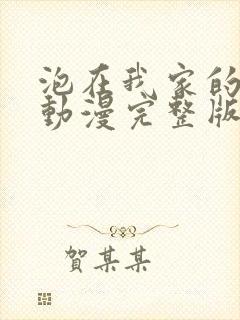 泡在我家的
動漫完整版
賀某某